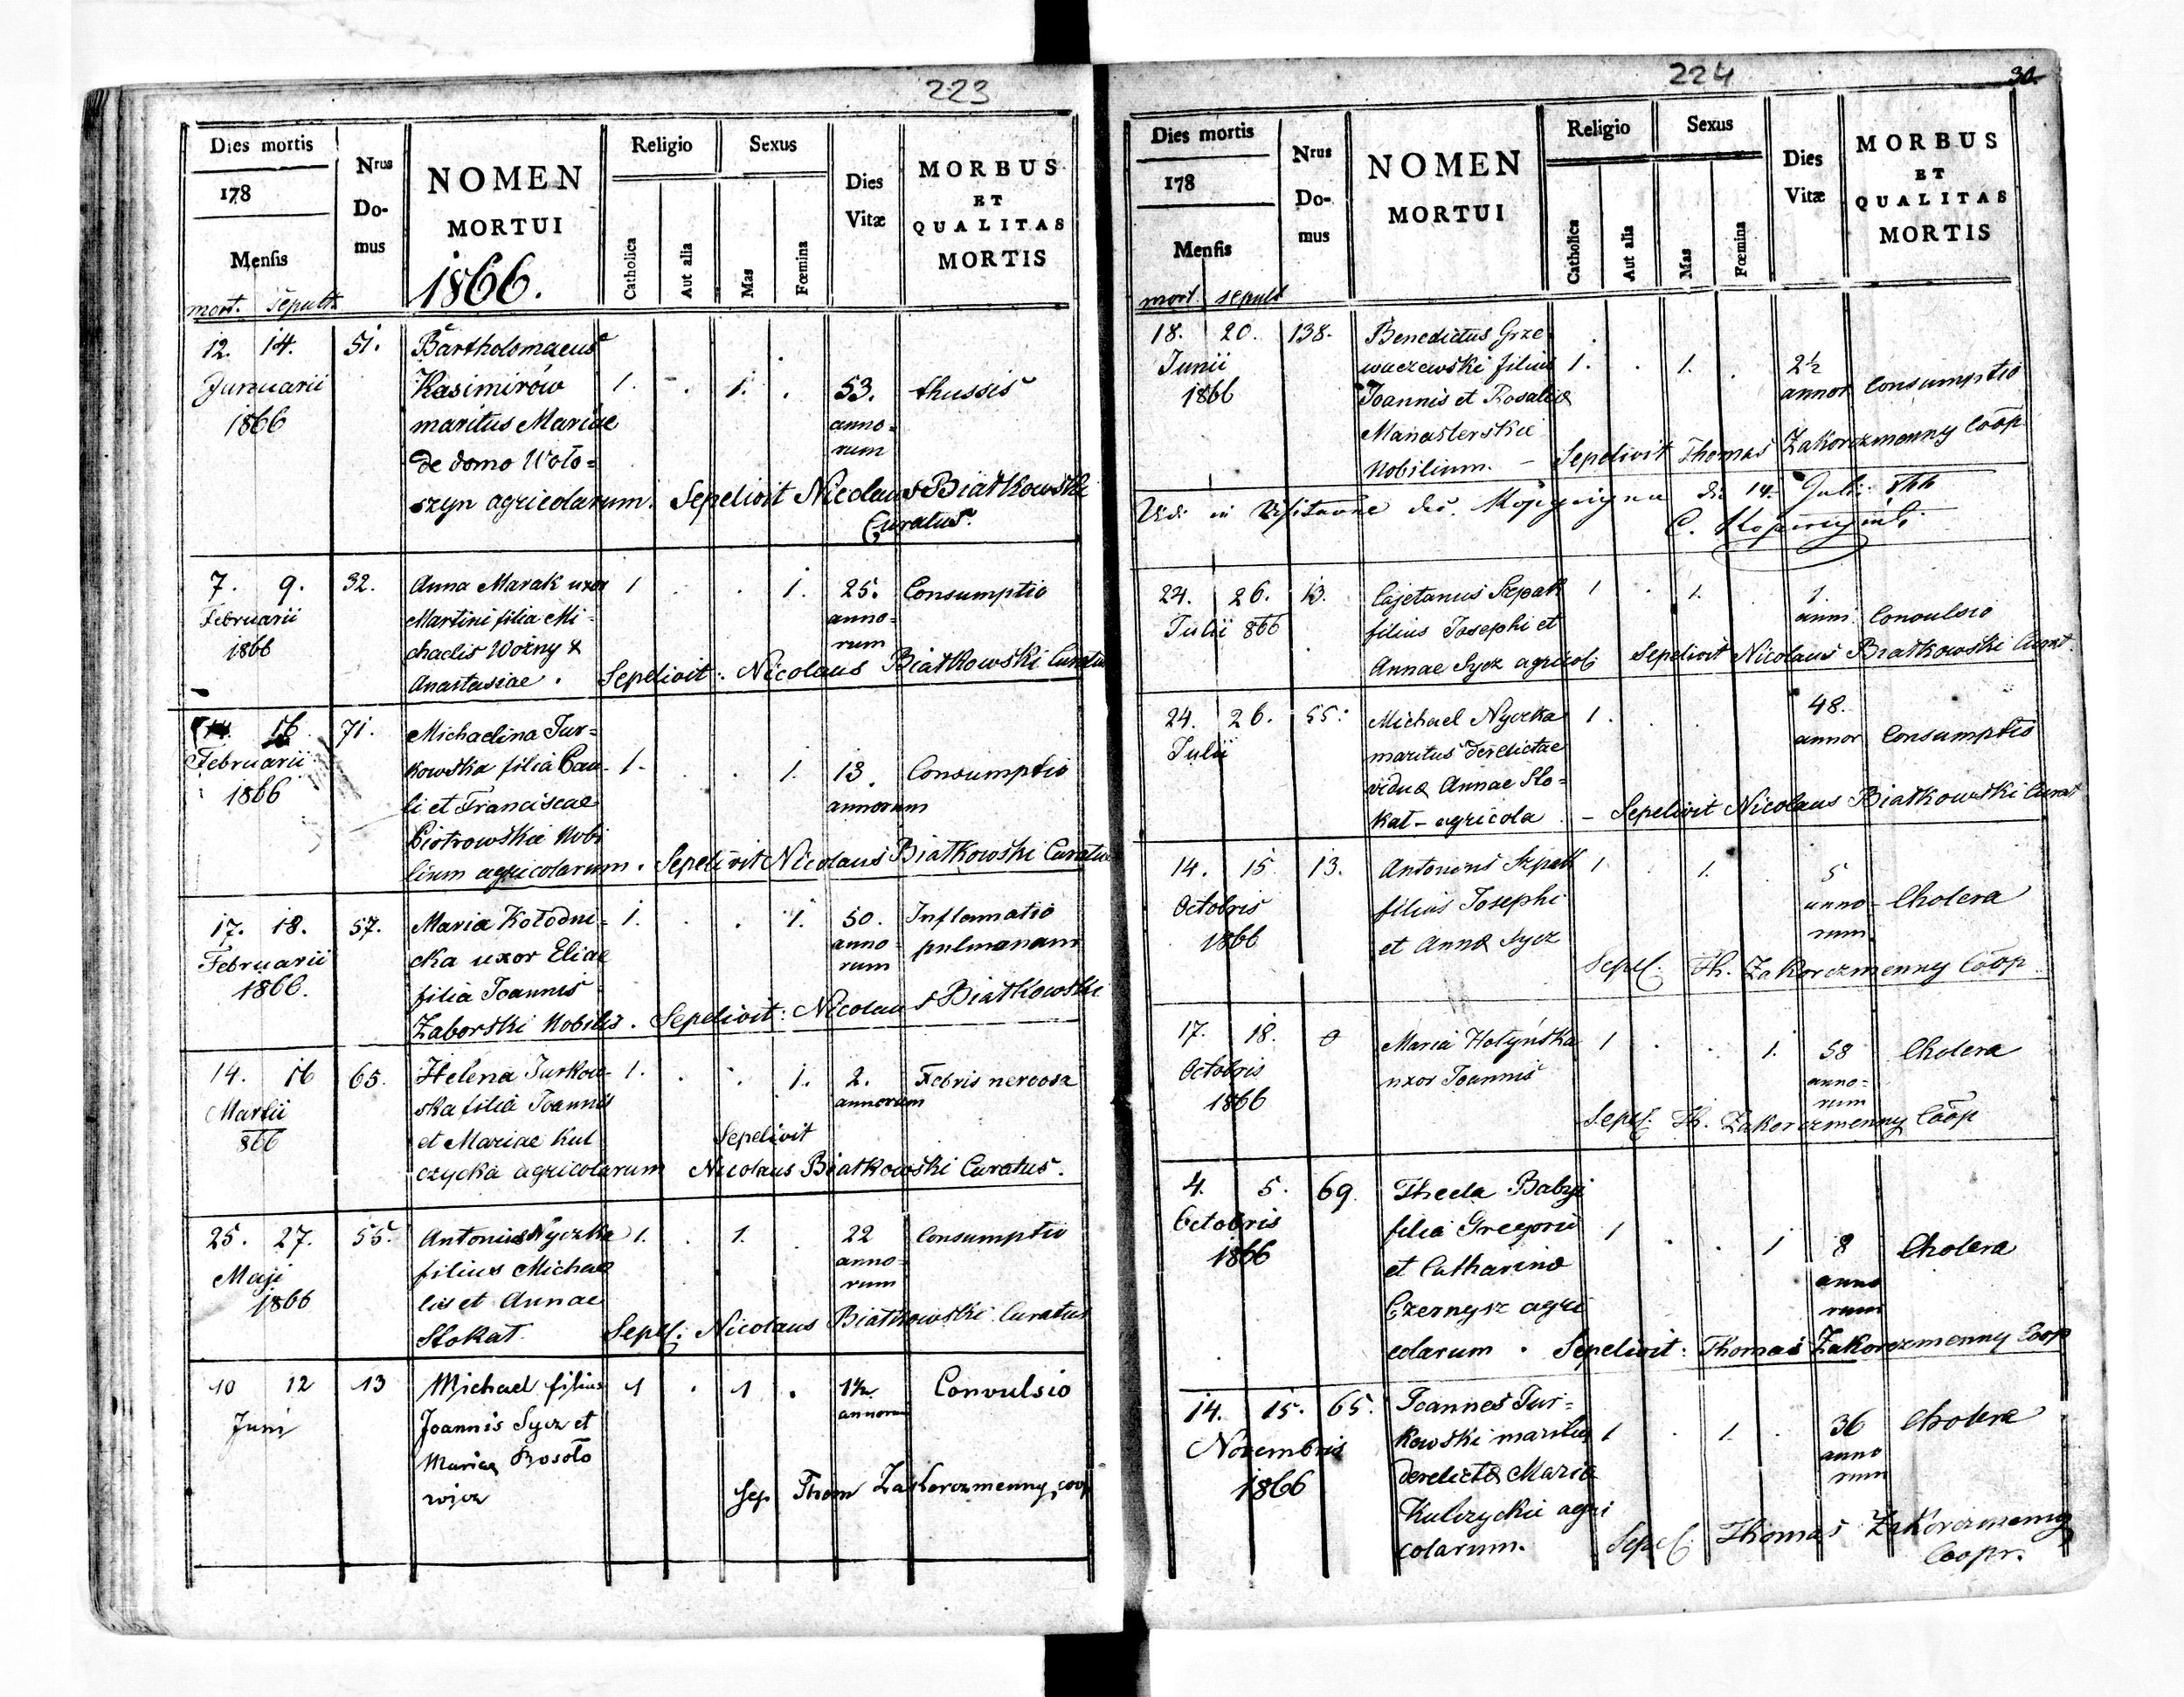 223
Dies mortis
178
Mensis
mort. sepult.
Nrus Do- mus
NOMEN
MORTUI
1866.
Religio
Catholica
Aut alia
Sexus
Mas
Fœmina
Dies Vitæ
MORBUS
ET
QUALITAS
MORTIS
12. 14. 51. Bartholomaeus
Januarii Kasimirów 1. . 1. . 53. thussis
1866 maritus Mariae anno=
de domo Woło= rum
szyn agricolarum. Sepelivit Nicolaus Białkowski
Curatus.
7. 9. 32. Anna Marak uxor 1 . . 1. 25. Consumptio
Februarii Martini filia Mi- anno=
1866 chaelis Woźny & rum
Anastasiae . Sepelivit: Nicolaus Białkowski Curatus
14. 16. 71. Michaelina Tur=
Februarii kowska filia Pau- 1. . . 1. 13. Consumptio
1866 li et Franciscae annorum
Piotrowskie Nobi
lium agricolarum . Sepelivit Nicolaus Białkowski Curatus
17. 18. 57. Maria Kołodni= 1. . . 1. 50. Inflamatio
Februarii cka uxor Eliae anno= pulmonam
1866. filia Joannis rum
Zaborski Nobilis. Sepelivit: Nicolaus Białkowski
14. 16 65. Helena Turkow- 1. . . 1. 2. Febris nervosa
Martii ska filia Joannis annorum
866 et Mariae Kul Sepelivit
czycka agricolarum Nicolaus Białkowski Curatus.
25. 27. 55. Antonius Nyczka 1. . 1. . 22 Consumptio
Maji filius Michae anno=
1866 lis et Annae rum
Stokat. Sepel: Nicolaus Białkowski Curatus
10 12 13 Michael filius 1 . 1 . 1½ Convulsio
Juni Joannis Sycz et annorum
Mariae Bosoło
wicz Sep Thom Zakorczmenny coop
224
30.
Dies mortis
178
Mensis
mort sepult
Nrus Do- mus
NOMEN
MORTUI
Religio
Catholica
Aut alia
Sexus
Mas
Fœmina
Dies Vitæ
MORBUS
ET
QUALITAS
MORTIS
18. 20. 138. Benedictus Grze
Junii waczewski filius 1. . 1. . 2½
1866 Joannis et Rosaliae annor Consumptio
Manasterskie
Nobilium. – Sepelivit Thomas Zakorczmenny Coop
Vidi in Visitatione 14. Julii 866
24. 26. 13. Cajetanus Szpak 1 . 1. 1.
Julii 866 filius Josephi et anni Convulsio
Annae Sycz agricol: Sepelivit Nicolaus Białkowski Curat.
24. 26. 55. Michael Nyczka 1. . . 48.
Julii maritus derelictae annor Consumptio
viduae Annae Sto=
kat – agricola . – Sepelivit Nicolaus Białkowski Curat
14. 15. 13. Antonius Szpak 1 . 1. . 5
Octobris filius Josephi anno- Cholera
1866 et Annae Sycz rum
Sepel: Th. Zakorczmenny Coop.
17. 18. 0 Maria Hołyńska 1 . . 1. 58 Cholera
Octobris uxor Joannis anno=
1866 rum
Sepel: Th. Zakorczmenny Coop
4. 5. 69. Thecla Babyj
Octobris filia Gregorii 1 . . 1 8 Cholera
1866 et Catharinae anno
Czernysz agri rum
colarum . Sepelivit: Thomas Zakorczmenny Coop
14. 15. 65. Joannes Tur=
Novembris kowski maritus 1 . 1. . 36 Cholera
1866 derelictae Mariae anno
Kulczyckie agri rum
colarum. Sepel: Thomas Zakorczmenny
Coopr.